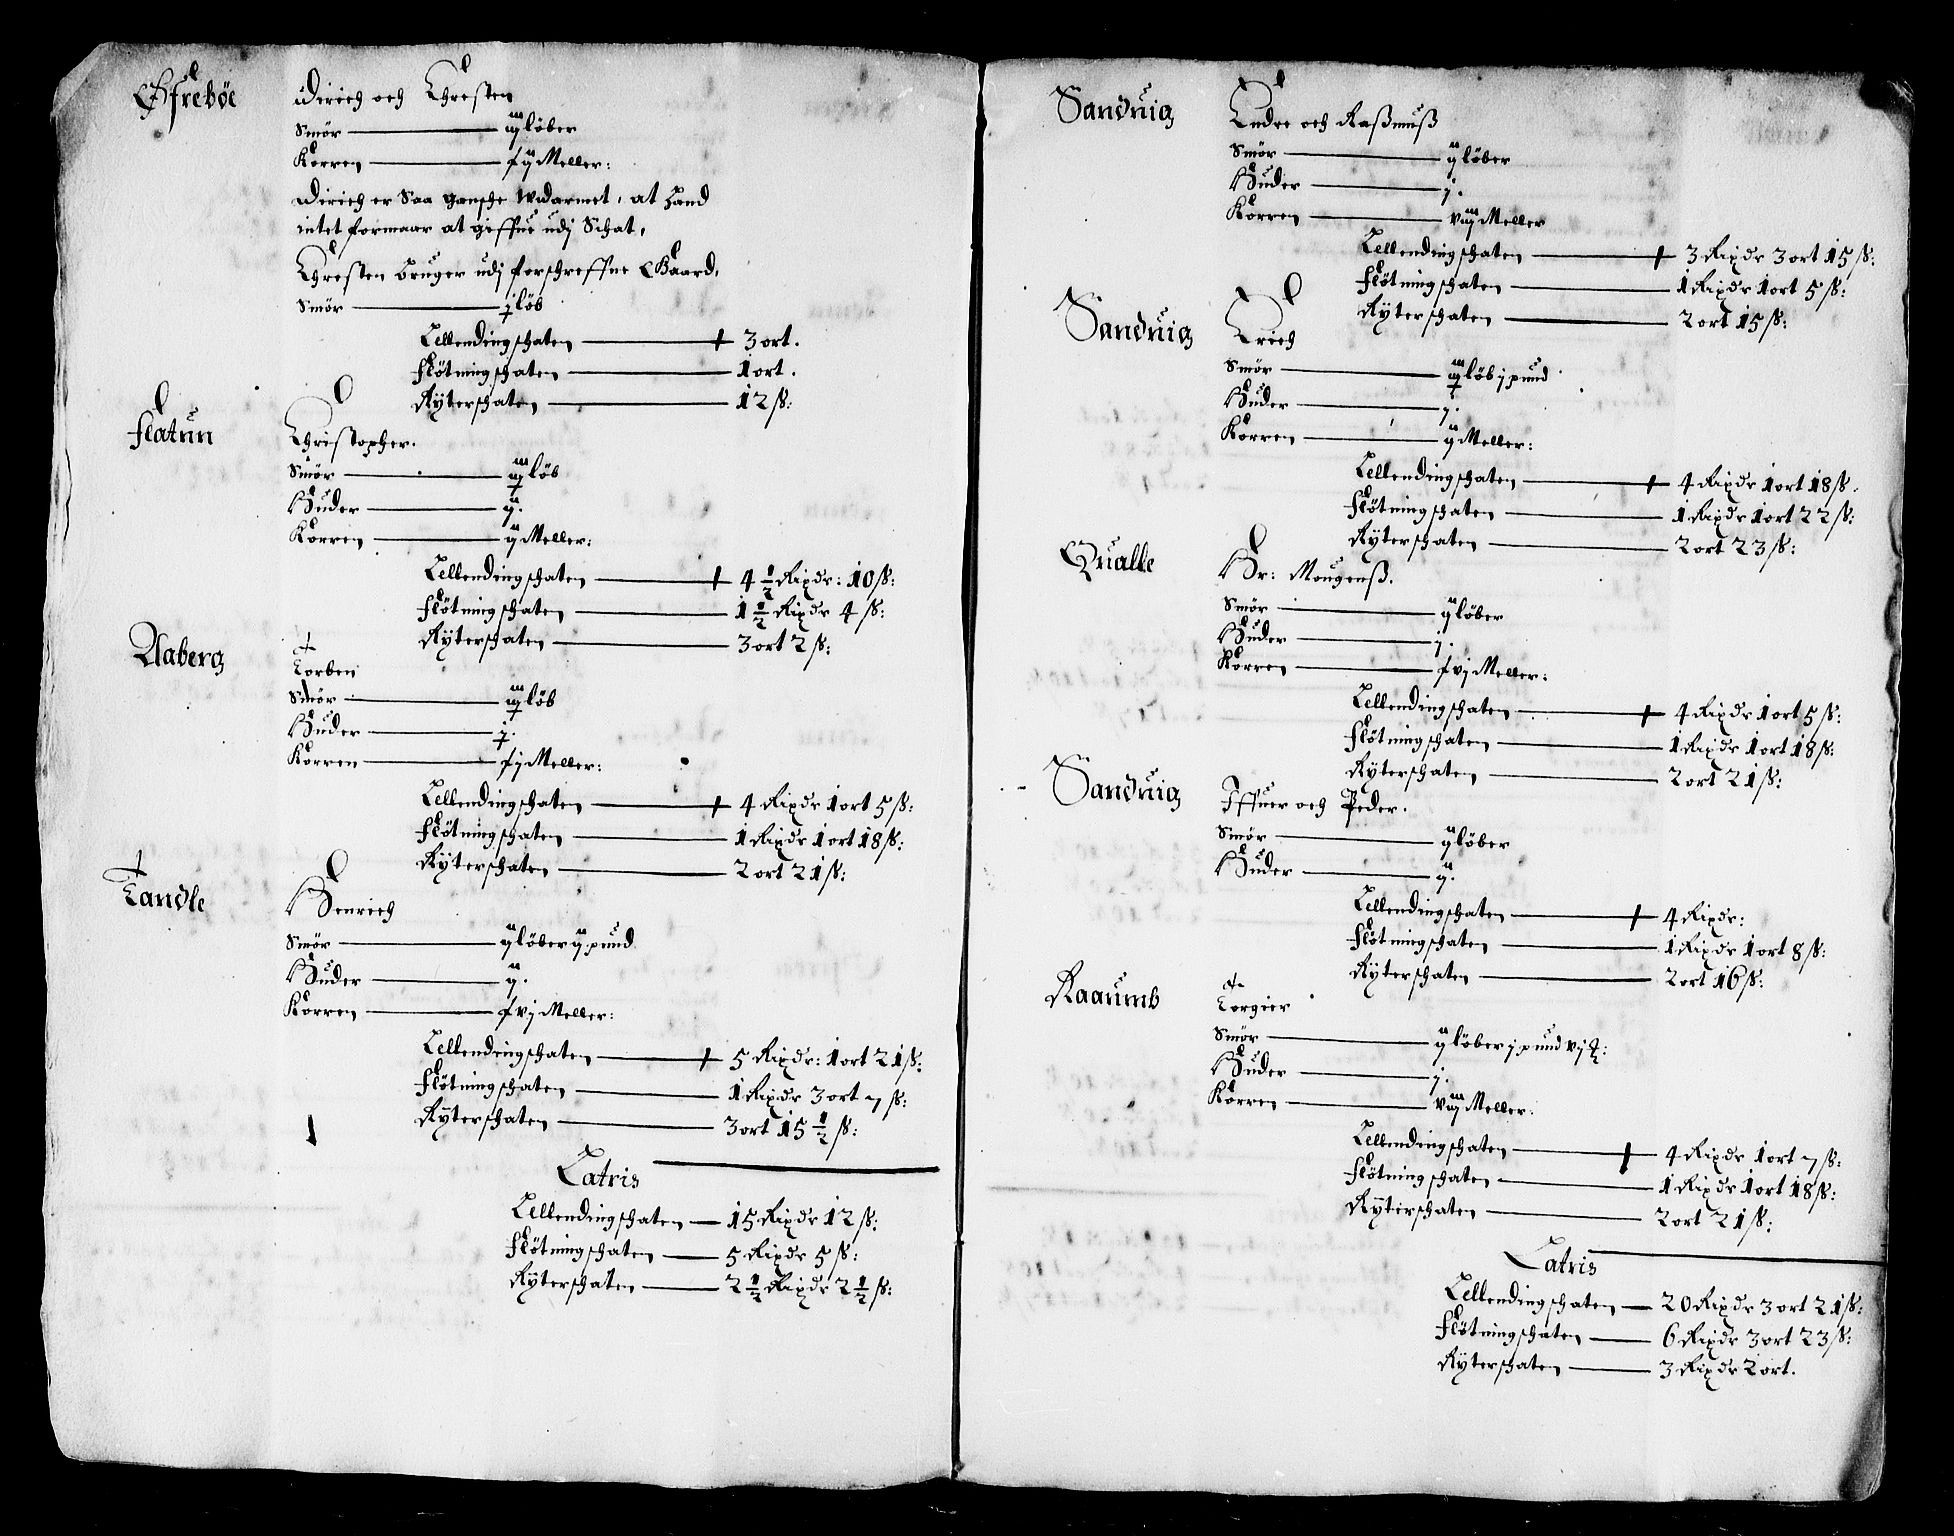 Øfrebøe
Dirich och Chresten
Smör iij löber
Korren f ij Meller:
Dirich er Saa gansche wdarmet, at hand
intet formaar at gieffue udj Schat,
Chresten bruger udj forschreffne Gaard,
Smör j löb
Lellendingschaten 3 ort.
Flötningschaten 1 ort.
Rÿterschaten 12 ß:
Flatun
Christopher.
Smör iiij löb
Huder ij.
Korren ij Meller:
Lellendingschaten 4 1/2 Rixdr: 10 ß:
Flötningschaten 1 1/2 Rixdr 4 ß:
Rÿterschaten 3 ort 2 ß:
Aaberg
Torben
Smör iiij löb
Huder j.
Korren f j Meller:
Lellendingschaten 4 Rixdr 1 ort 5 ß:
Flötningschaten 1 Rixdr 1 ort 18 ß:
Rÿterschaten 2 ort 21 ß:
Tandle
Henrich
Smör ij löber ij pund
Huder ij.
Korren f vj Meller:
Lellendingschaten 5 Rixdr: 1 ort 21 ß:
Flötningschaten 1 Rixdr 3 ort 7 ß:
Rÿterschaten 3 ort 15 1/2 ß:
Latris
Lellendingschaten 15 Rixdr 12 ß:
Flötningschaten 5 Rixdr 5 ß:
Rÿterschaten 2 1/2 Rixdr 2 1/2 ß:
Sanduig
Endre och Rasßmuß
Smör ij löber
Huder j.
Korren viij Meller
Lellendingschaten 3 Rixdr 3 ort 15 ß:
Flötningschaten 1 Rixdr 1 ort 5 ß:
Rÿterschaten 2 ort 15 ß:
Sanduig
Erich
Smör iij löb j pund
Huder j.
Korren ij Meller:
Lellendingschaten 4 Rixdr 1 ort 18 ß.
Flötningschaten 1 Rixdr 1 ort 22 ß:
Rÿterschaten 2 ort 23 ß:
Qualle
Hr: Mougenß.
Smör ij löber
Huder j.
Korren f vj Meller:
Lellendingschaten 4 Rixdr 1 ort 5 ß:
Flötningschaten 1 Rixdr 1 ort 18 ß:
Rÿterschaten 2 ort 21 ß:
Sanduig
Iffuer och Peder.
Smör ij löber
Huder ij.
Lellendingschaten 4 Rixdr:
Flötningschaten 1 Rixdr 1 ort 8 ß:
Rÿterschaten 2 ort 16 ß:
Raaumb
Torgier
Smör ij löber j pund vj
Huder j.
Korren viij Meller:
Lellendingschaten 4 Rixdr 1 ort 7 ß:
Flötningschaten 1 Rixdr 1 ort 18 ß:
Rÿterschaten 2 ort 21 ß:
Latris
Lellendingschaten 20 Rixdr 3 ort 21 ß:
Flötningschaten 6 Rixdr 3 ort 23 ß:
Rÿterschaten 3 Rixdr 2 ort.